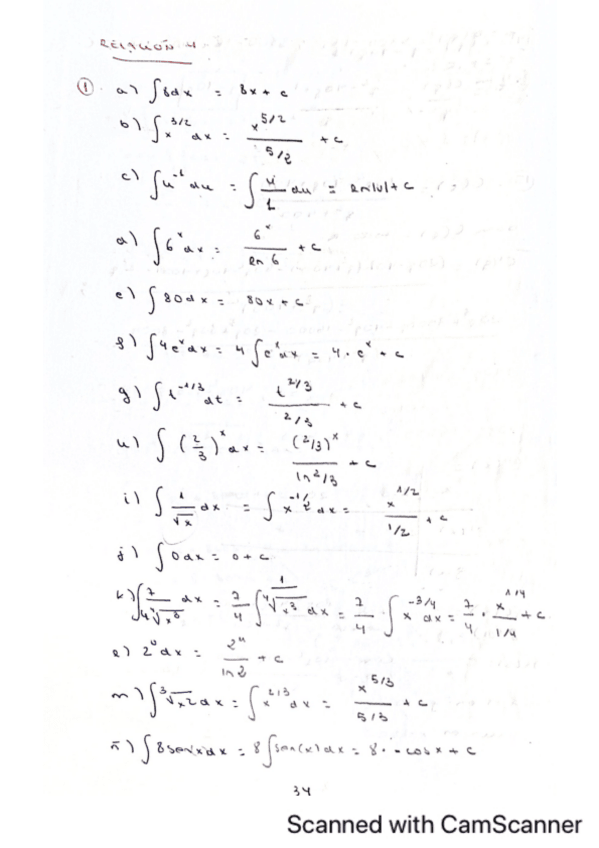 RELACIÓN 4
① a) ∫8dx = 8x + c
b) ∫x^{3/2} dx = x^{5/2} / 5/2 + c
c) ∫u^{-1} du = ∫ u/1 du = ln|u| + c
d) ∫6^x dx = 6^x / ln 6 + c
e) ∫80dx = 80x + c
f) ∫4e^x dx = 4 ∫e^x dx = 4 · e^x + c
g) ∫t^{-1/3} dt = t^{2/3} / 2/3 + c
h) ∫(2/3)^x dx = (2/3)^x / ln 2/3 + c
i) ∫ 1/√x dx = ∫x^{-1/2} dx = x^{1/2} / 1/2 + c
j) ∫0dx = 0 + c
dx = 7/4 ∫ 1/∜x³ dx = 7/4 · ∫x^{-3/4} dx = 7/4 · x^{1/4} / 1/4 + c
l) 2^u dx = 2^u / ln 2 + c
m) ∫∛x2 dx = ∫x^{2/3} dx = x^{5/3} / 5/3 + c
ñ) ∫8senxdx = 8 ∫sen(x)dx = 8 · - cos x + c
34
Scanned with CamScanner